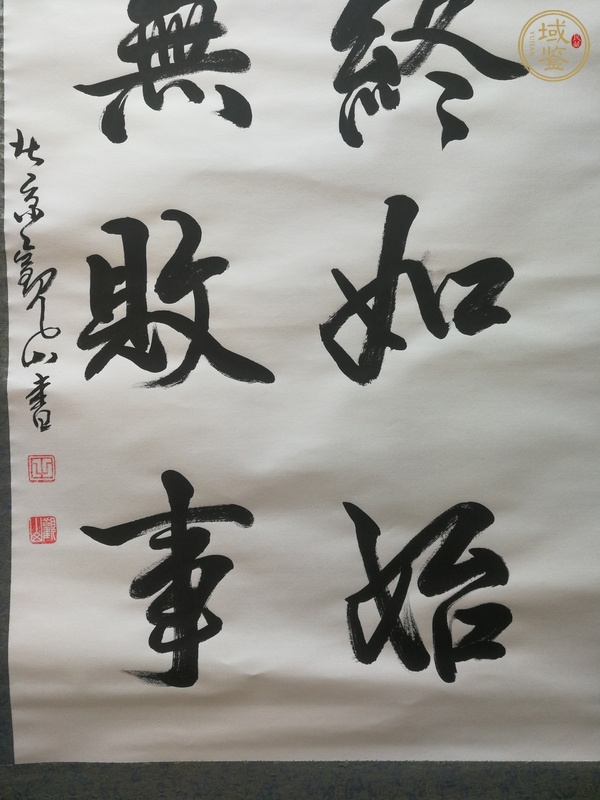 終如始
無敗事
北京觀山書
觀山
域鉴